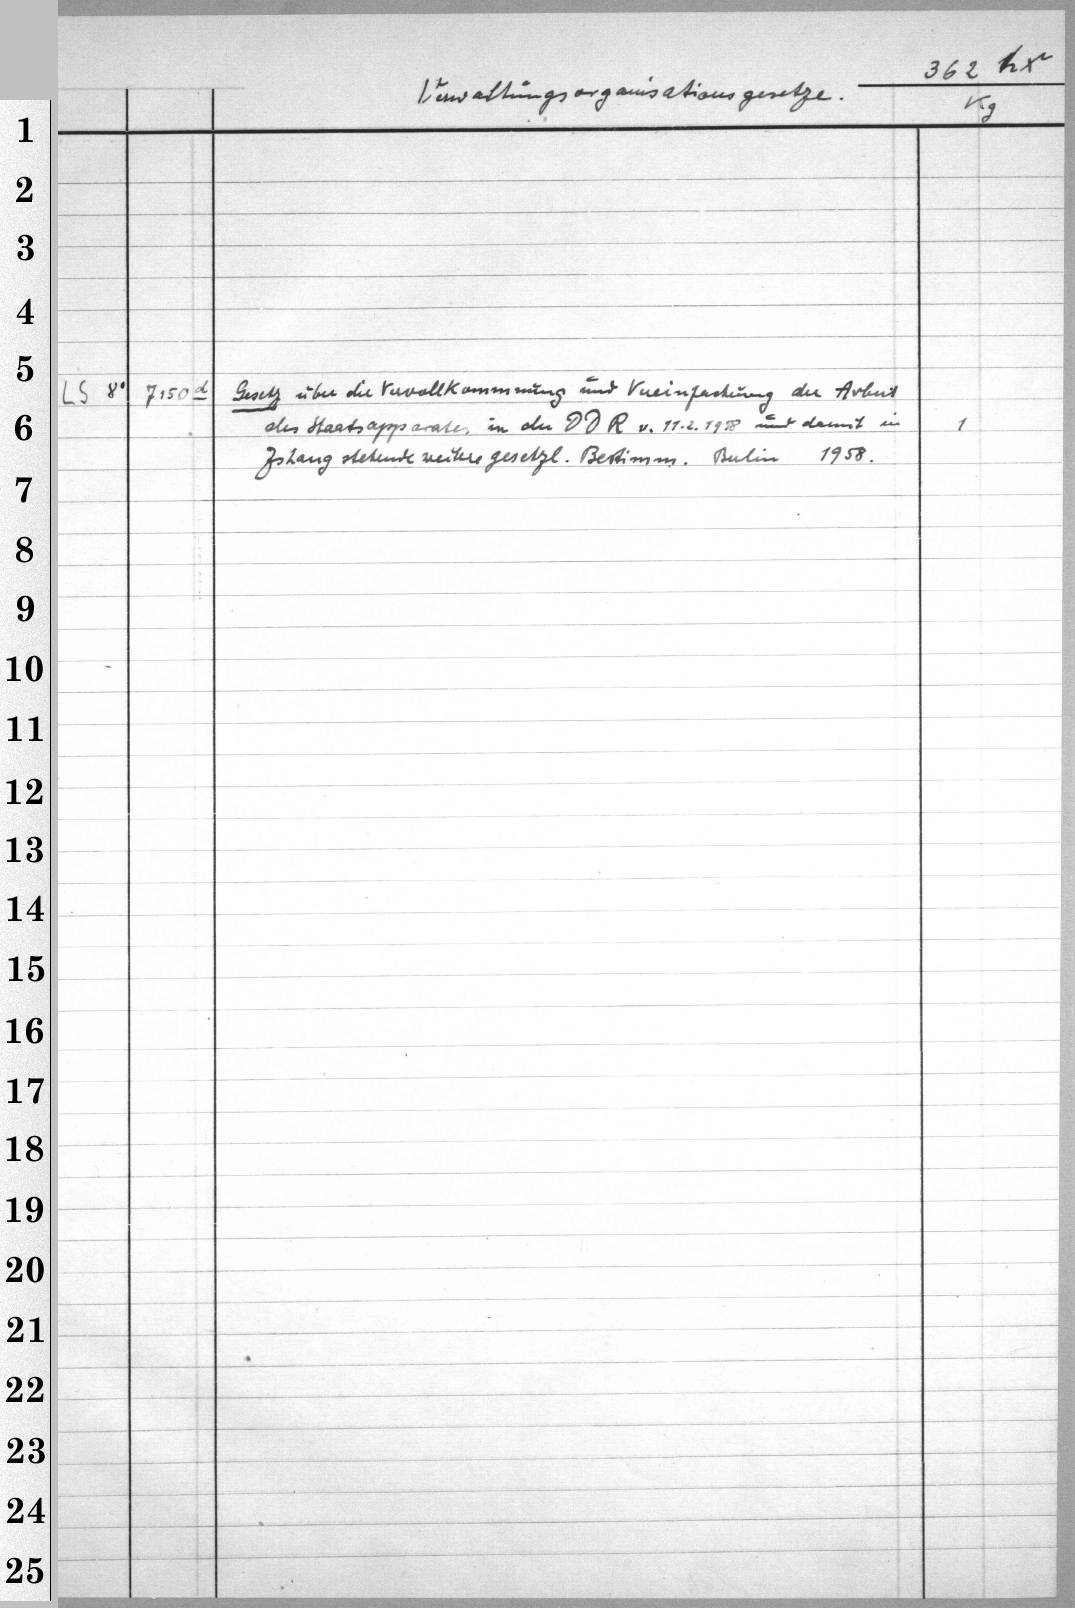 362 hx
Verwaltungsorganisationsgesetze.
Kg
1
2
3
4
5
LS 8° 7150 d Gesetz über die Vervollkommnung und Vereinfachung der Arbeit
6
des Staatsapparates in der DDR v. 11.2.1958 und damit in 1
Zshang stehende weitere gesetzl. Bestimm. Berlin 1958.
7
8
9
10
11
12
13
14
15
16
17
18
19
20
21
22
23
24
25